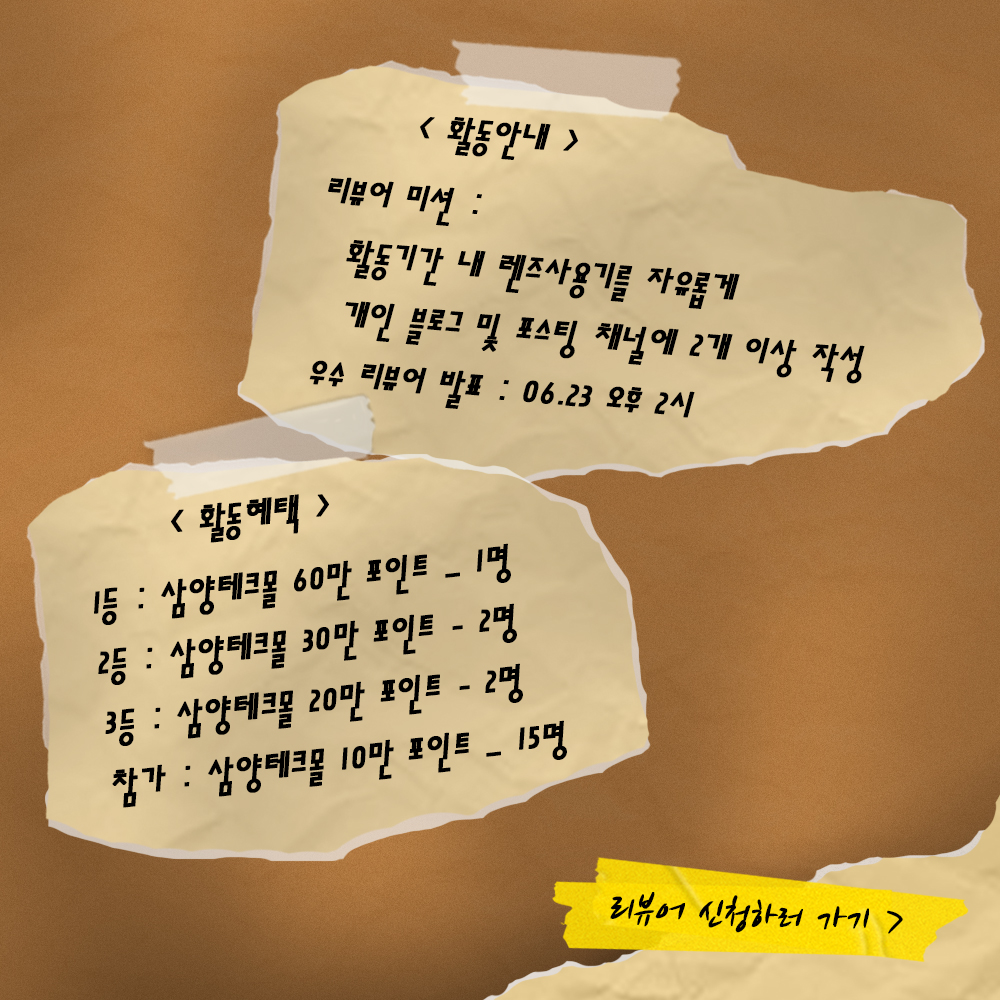 < 활동안내 >
리뷰어 미션 :
활동기간 내 렌즈사용기를 자유롭게
개인 블로그 및 포스팅 채널에 2개 이상 작성
우수 리뷰어 발표 : 06.23 오후 2시
< 활동혜택 >
1등 : 삼양테크몰 60만 포인트 _ 1명
2등 : 삼양테크몰 30만 포인트 - 2명
3등 : 삼양테크몰 20만 포인트 - 2명
참가 : 삼양테크몰 10만 포인트 _ 15명
리뷰어 신청하러 가기 >